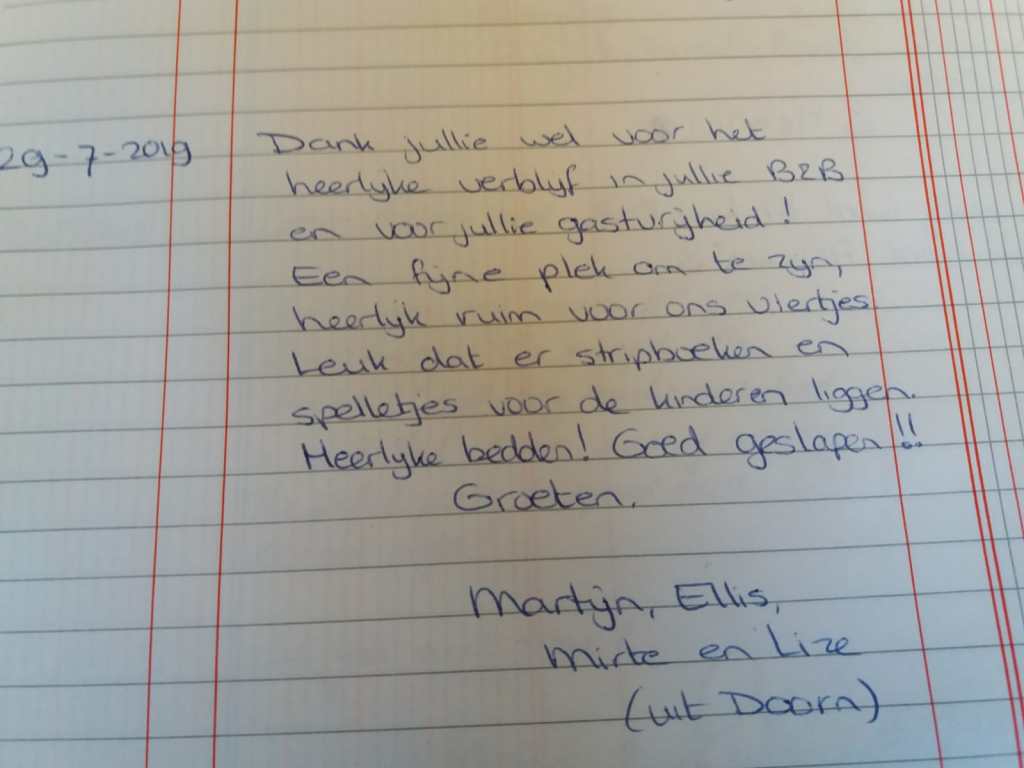 29-7-2019 Dank jullie wel voor het
heerlijke verblijf in jullie B&B
en voor jullie gastvrijheid!
Een fijne plek om te zijn,
heerlijk ruim voor ons viertjes
Leuk dat er stripboeken en
spelletjes voor de kinderen liggen.
Heerlijke bedden! Goed geslapen!!
Groeten.
Martijn, Ellis,
Mirte en Lize
(uit Doorn)